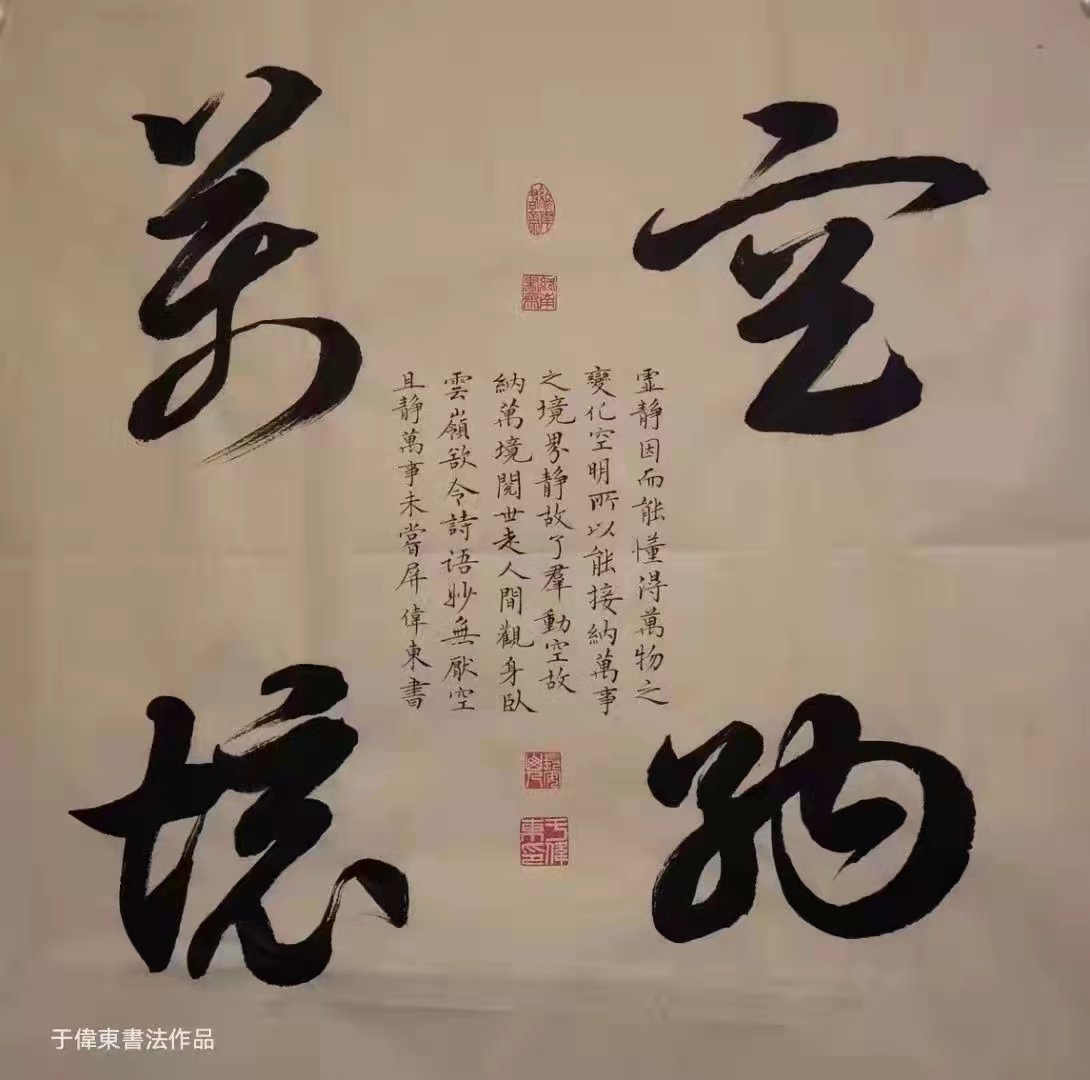 空納
萬境
虛静因而能懂得萬物之
變化空明所以能接納萬事
之境界静故了羣動空故
納萬境閱世走人間觀身臥
雲嶺欲令詩语妙無厭空
且静萬事未嘗屏偉東書
于偉東印
于偉東書法作品